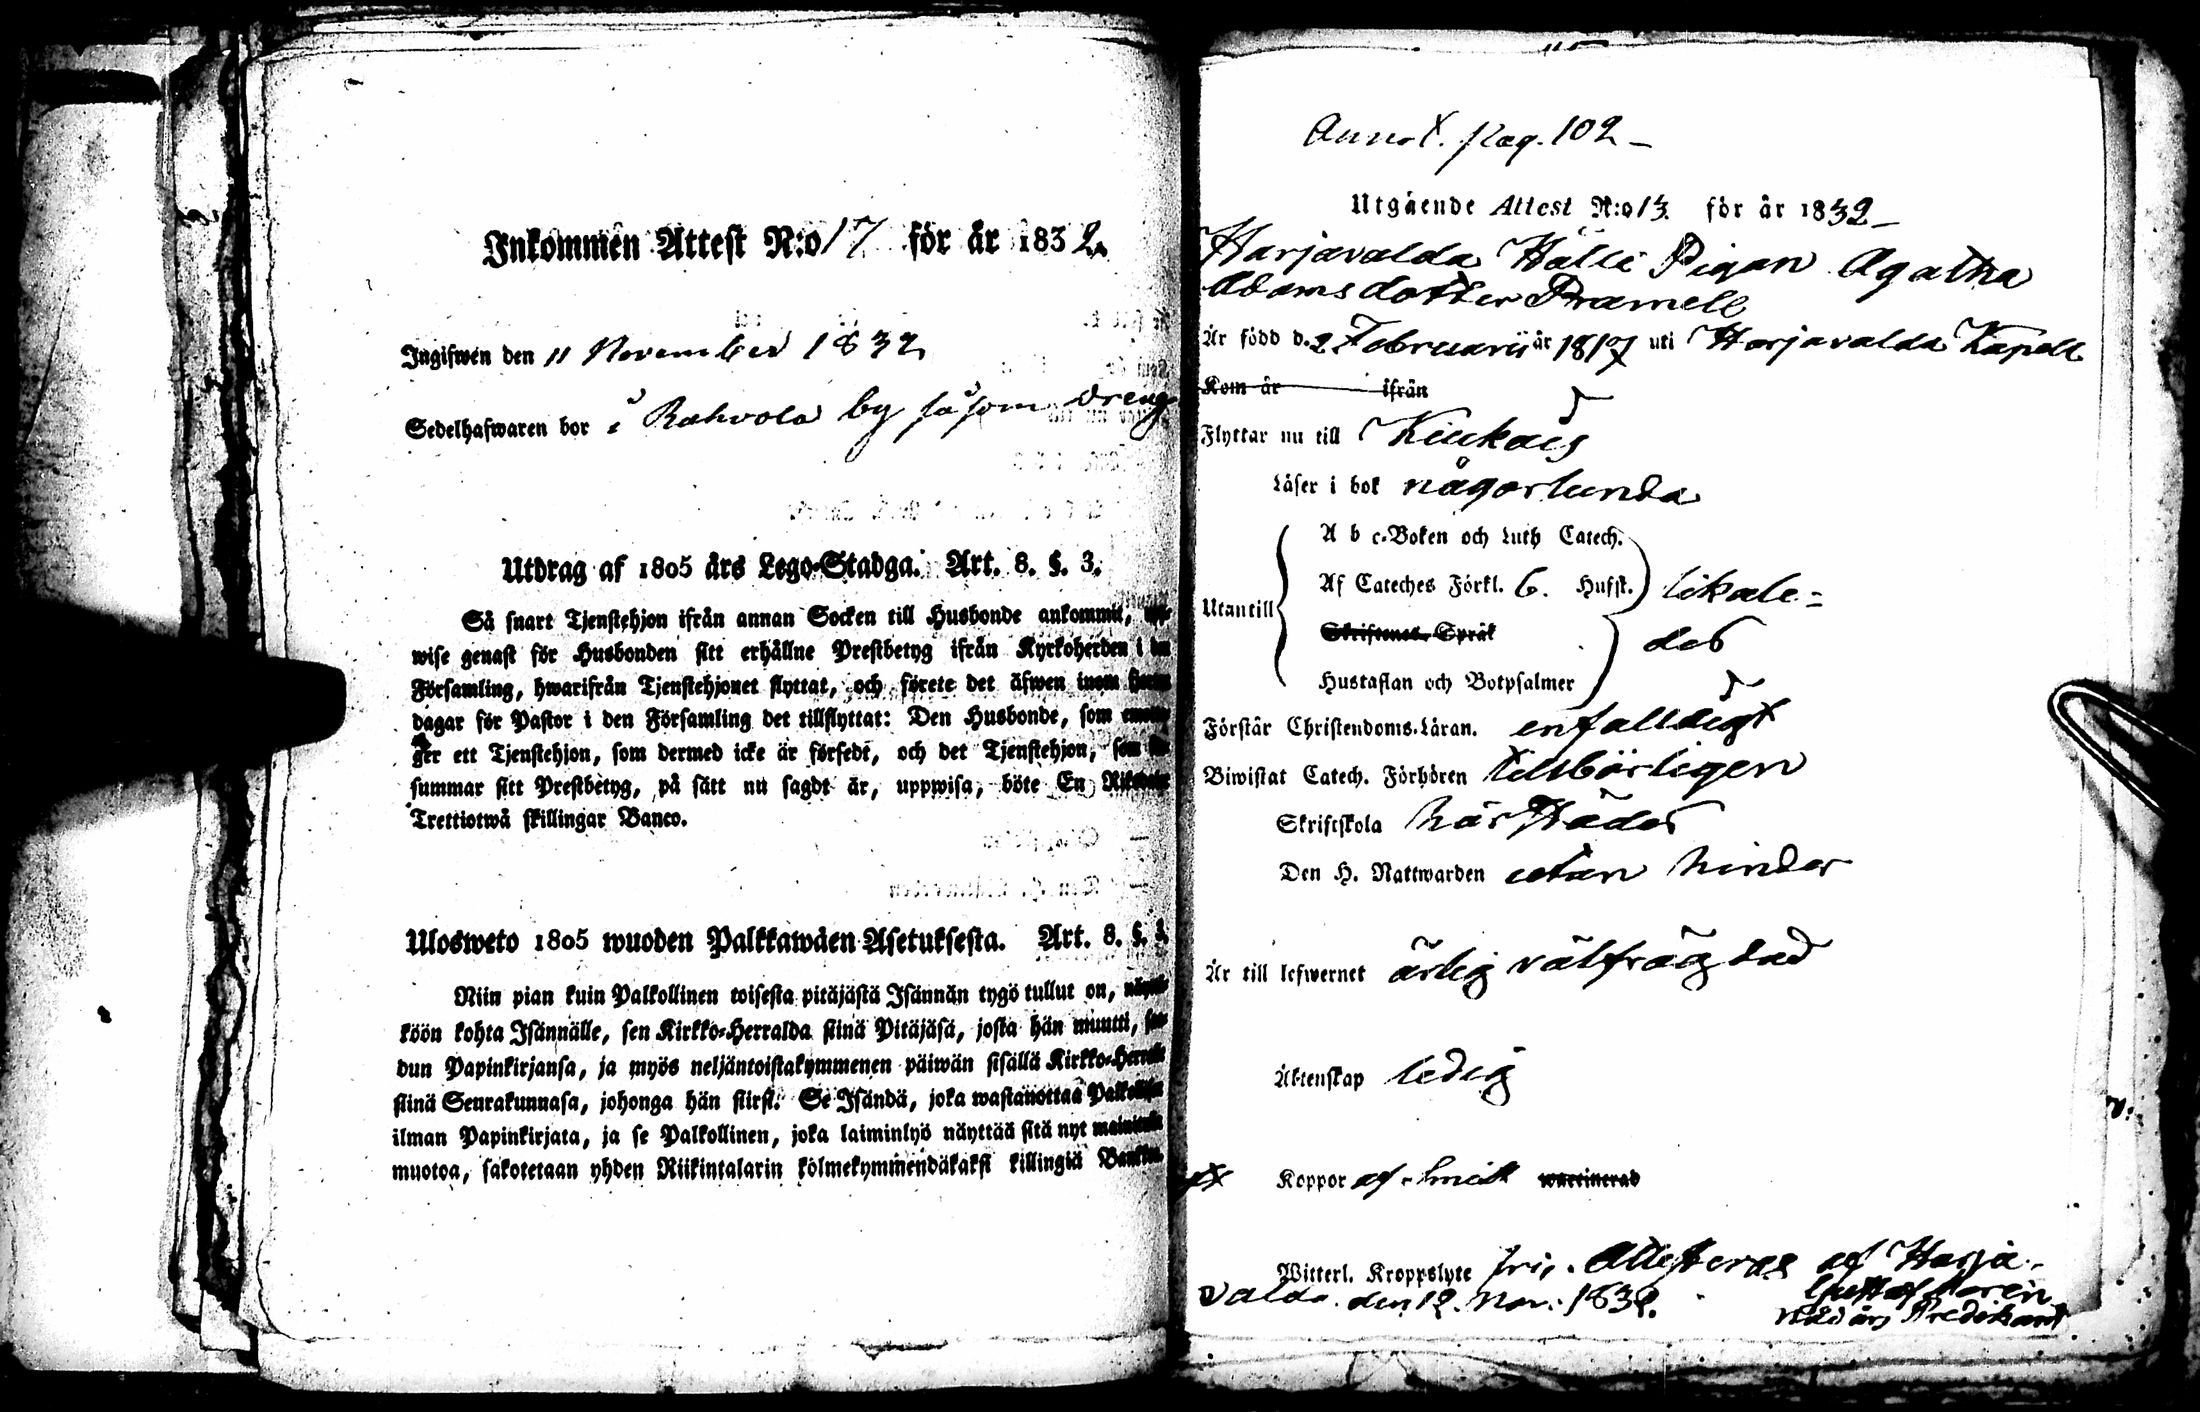 Inkommen Attest N:o 17 för år 1832.
Ingifwen den 11 November 1832.
Sedelhafwaren bor i Rahvola by såsom dreng
Utdrag af 1805 års Lego-Stadga. Art. 8. §. 3.
Så snart Tjenstehjon ifrån annan Socken till Husbonde ankommit,
wise genast för Husbonden sitt erhållne Prestbetyg ifrån Kyrkoherden i
Församling, hwarifrån Tjenstehjonet flyttat, och förete det äfwen inom
dagar för Pastor i den Församling det tillflyttat: Den Husbonde, som
ger ett Tjenstehjon, som dermed icke är försedt, och det Tjenstehjon,
summar sitt Prestbetyg, på sätt nu sagdt är, uppwisa, böte En
Trettiotwå skillingar Banco.
Ulosweto 1805 wuoden Palkkawäen Asetuksesta. Art. 8. §. 3.
Niin pian kuin Palkollinen toisesta pitäjästä Isännän tygö tullut on,
köön kohta Isännälle, sen Kirkko-Herralda siinä Pitäjäsä, josta hän muutti,
dun Papinkirjansa, ja myös neljäntoistakymmenen päiwän sisällä Kirkko-
siinä Seurakunnasa, johonga hän siirsi. Se Isändä, joka wastanottaa
ilman Papinkirjata, ja se Palkollinen, joka laiminlyö näyttää sitä nyt
muotoa, sakotetaan yhden Riikintalarin kolmekymmendäkaksi killingiä
Annot. pag. 102 –
Utgående Attest N:o 13. för år 1832 –
Harjavalda Pigan Agatha
Adamsdotter Pramell
Är född d. 2 Februarii år 1817 uti Harjavalda Kapell
Kom år ifrån
Flyttar nu till Kiukais
Läser i bok någorlunda
A b c-Boken och Luth Catech.
Af Cateches Förkl. 6. Hufst. likale=
Utantill
Skriftenes Språk
des
Hustaflan och Botpsalmer
Förstår Christendoms-Läran. enfalldigt
Biwistat Catech. Förhören tillbörligen
Skriftskola härstädes
Den H. Nattwarden utan hinder
Är till lefwernet ärlig välfrägdad
Äktenskap ledig
Koppor af smitt waccinerad
Witterl. Kroppslyte fri. Attesteras af Harja-
valda den 12. Nov. 1832. Gustaf Noren
Nådårs Predikant